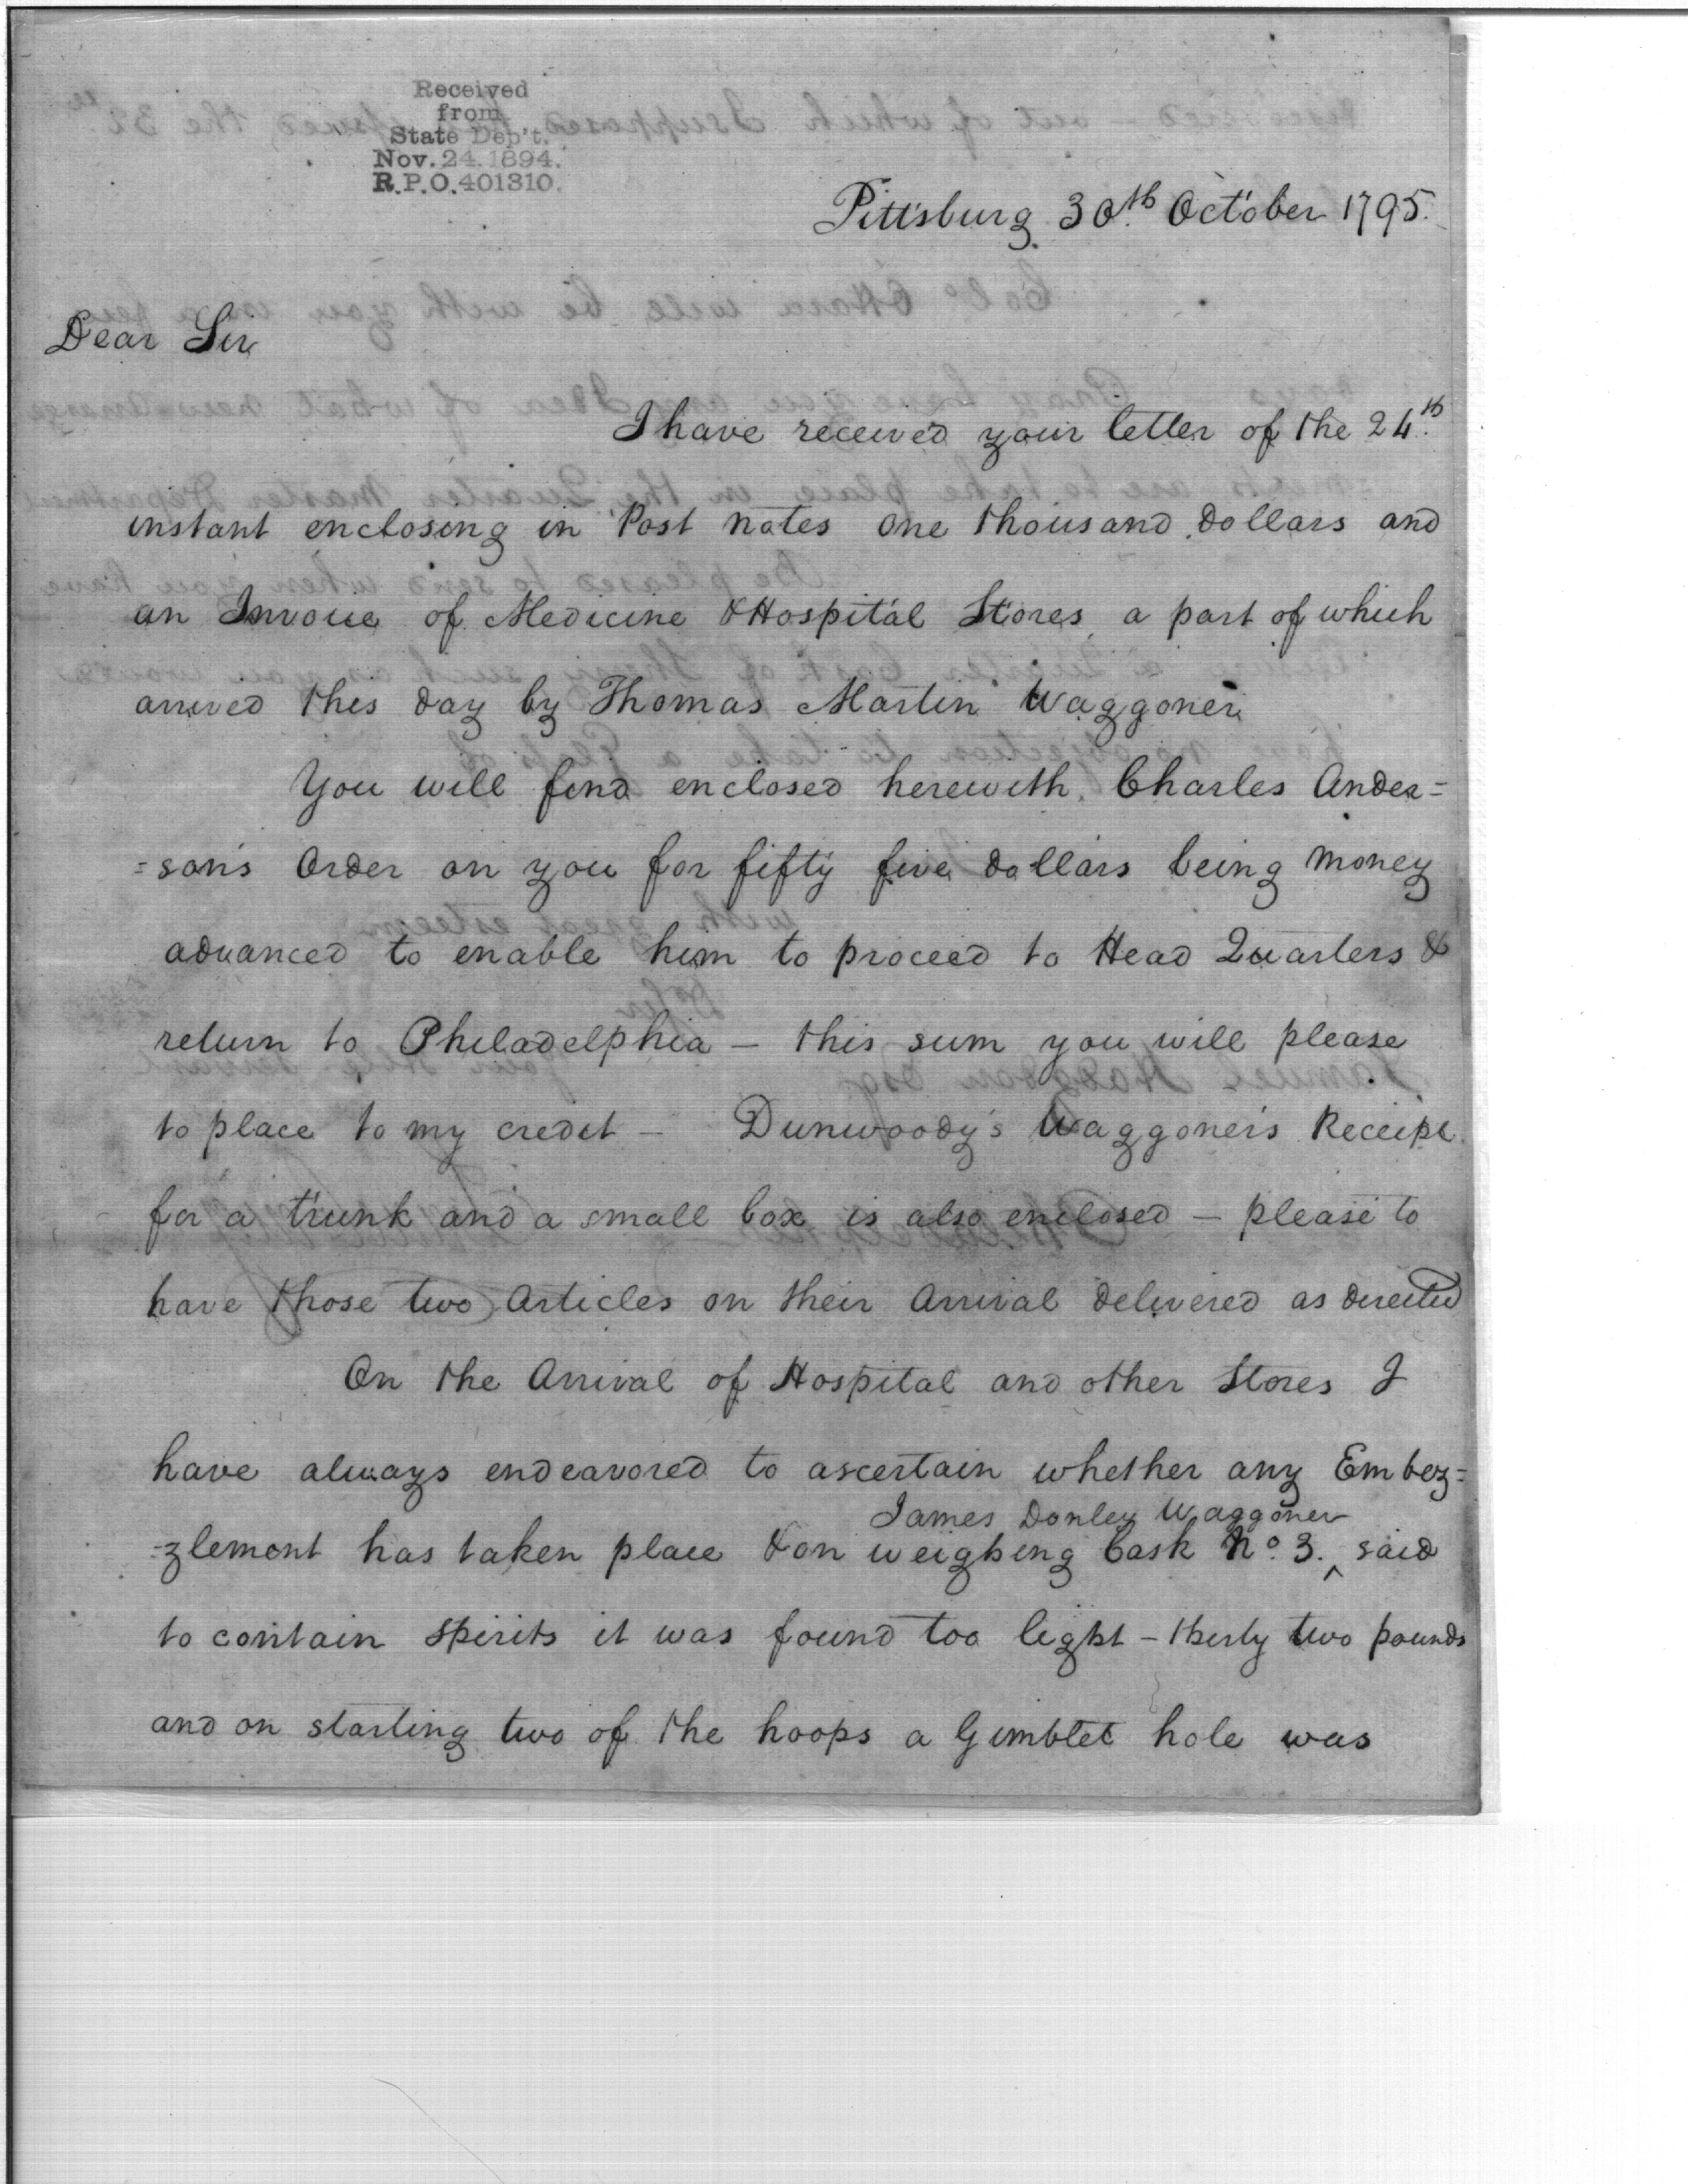 Received
from
State Dep't.
Nov. 24. 1894.
R.P.O. 401310.
Pittsburg 30th October 1795.
Dear Sir
I have received your letter of the 24th
instant enclosing in Post notes one thousand dollars and
an Invoice of Medicine & Hospital Stores a part of which
arrived this day by Thomas Martin Waggoner
You will find enclosed herewith Charles Ander=
=son's Order on you for fifty five dollars being money
advanced to enable him to proceed to Head Quarters &
return to Philadelphia – this sum you will please
to place to my credit – Dunwoody's Waggoner's Receipt
for a trunk and a small box is also enclosed – please to
have those two Articles on their Arrival delivered as directed
On the Arrival of Hospital and other Stores I
have always endeavored to ascertain whether any Embez=
James Donley Waggoner
=zlement has taken place & on weighing Cask No. 3. ^ said
to contain Spirits it was found too light – thirty two pounds
and on starting two of the hoops a Gimblet hole was